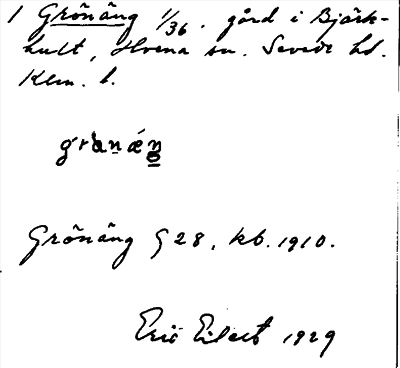 1 Grönäng 1/36. gård i Björk-
hult, Hvena sn. Sevede hd.
Klm. l.
Grönäng § 28, kb. 1910.
Eric Eilert 1929